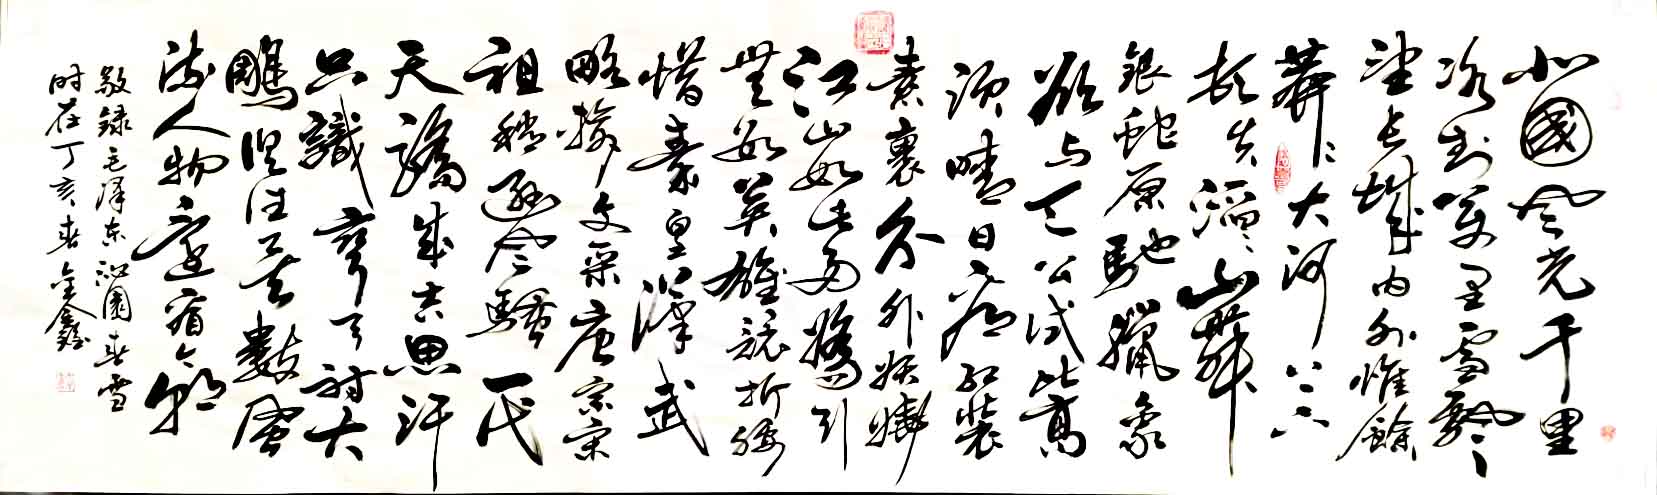 北國風光千里
冰封萬里雪飄〻
望长城内外惟餘
莽〻大河上下
頓失滔〻山舞
銀蛇原馳臘象
欲与天公试比高
须晴日看红装
素裹分外妖娆
江山如此多嬌引
無数英雄競折腰
惜秦皇漢武
略输文采唐宗宋
祖稍逊風騷一代
天驕成吉思汗
只識彎弓射大
鵰俱往矣數風
流人物還看今朝
敬録毛泽东沁園春雪
时在丁亥春金鑫